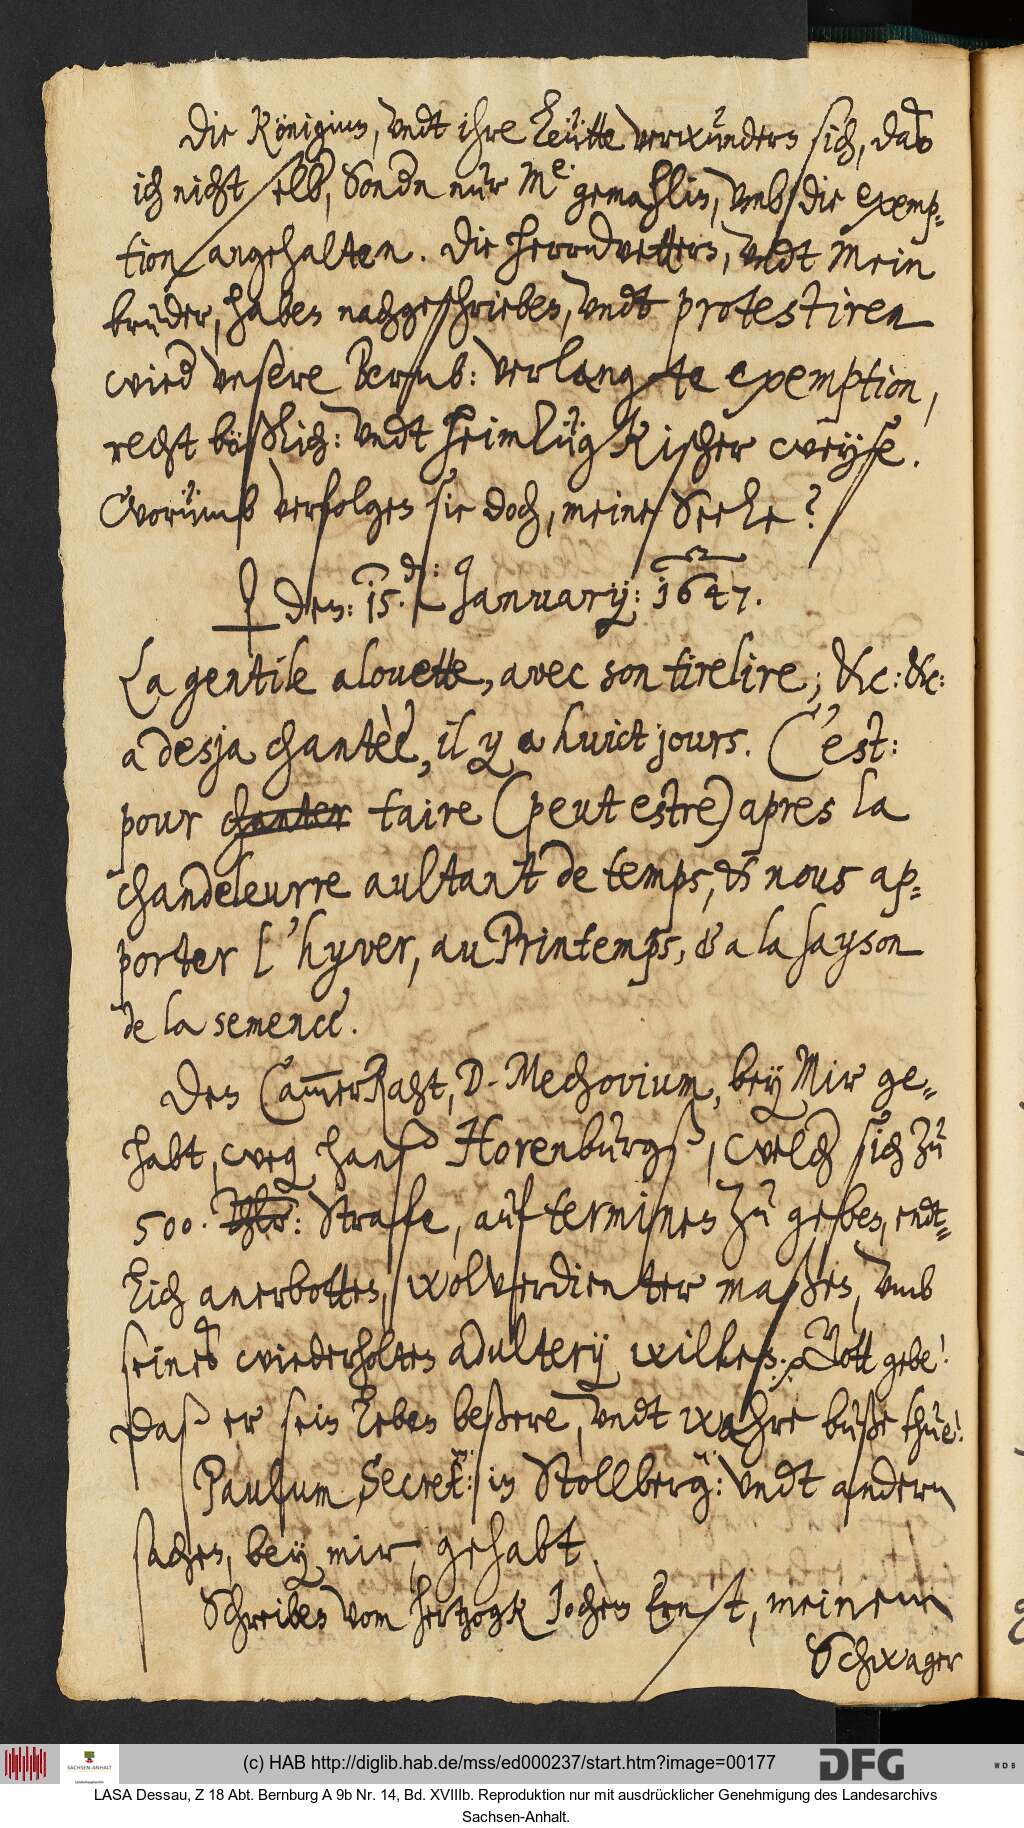 Die Königinn, undt ihre Leütte verwundern sich, daß
ich nicht selb, Sondn nur Me: gemahlin, umb die exemp=
tion angehalten. Die herrn vettern, undt Mein
bruder, haben nachgeschrieben, undt protestiren
wied unsere Bernb: verlangte exemption,
recht bößlich: undt heimlügkischer weyse.
Worumb verfolgen sie doch, meine Seele?
♀ den: 15.d: January: 1647.
La gentile alouette, avec son tirelire; &c: &c:
a desja chantèè, il y a huict jours. C'est:
pour chanter taire (peut estre) apres la
chandeleurre aultant de temps, & nous ap=
porter l'hyver, au Printemps, & a la sayson
de la semence.
Den CammerRaht, D. Mechovium, bey Mir ge=
habt, weg hanß Horenburgß, welch sich zu
500. Thlr: Straffe, auf terminen zu geben, endt=
lich anerbotten, wolverdienter maßen, umb
seines wiederholten adulterij willen. Gott gebe!
Daß er sein Leben beßere, undt wahre buße thue!
Paulum, Secret: in Stollberg: undt andern
sachen, bey mir, gehabt.
Schreiben vom hertzogk Jochem Ernst, meinem
Schwager
(c) HAB http://diglib.hab.de/mss/ed000237/start.htm?image=00177
SACHSEN-ANHALT
DFG
WDB
LASA Dessau, Z 18 Abt. Bernburg A 9b Nr. 14, Bd. XVIIIb. Reproduktion nur mit ausdrücklicher Genehmigung des Landesarchivs
Sachsen-Anhalt.